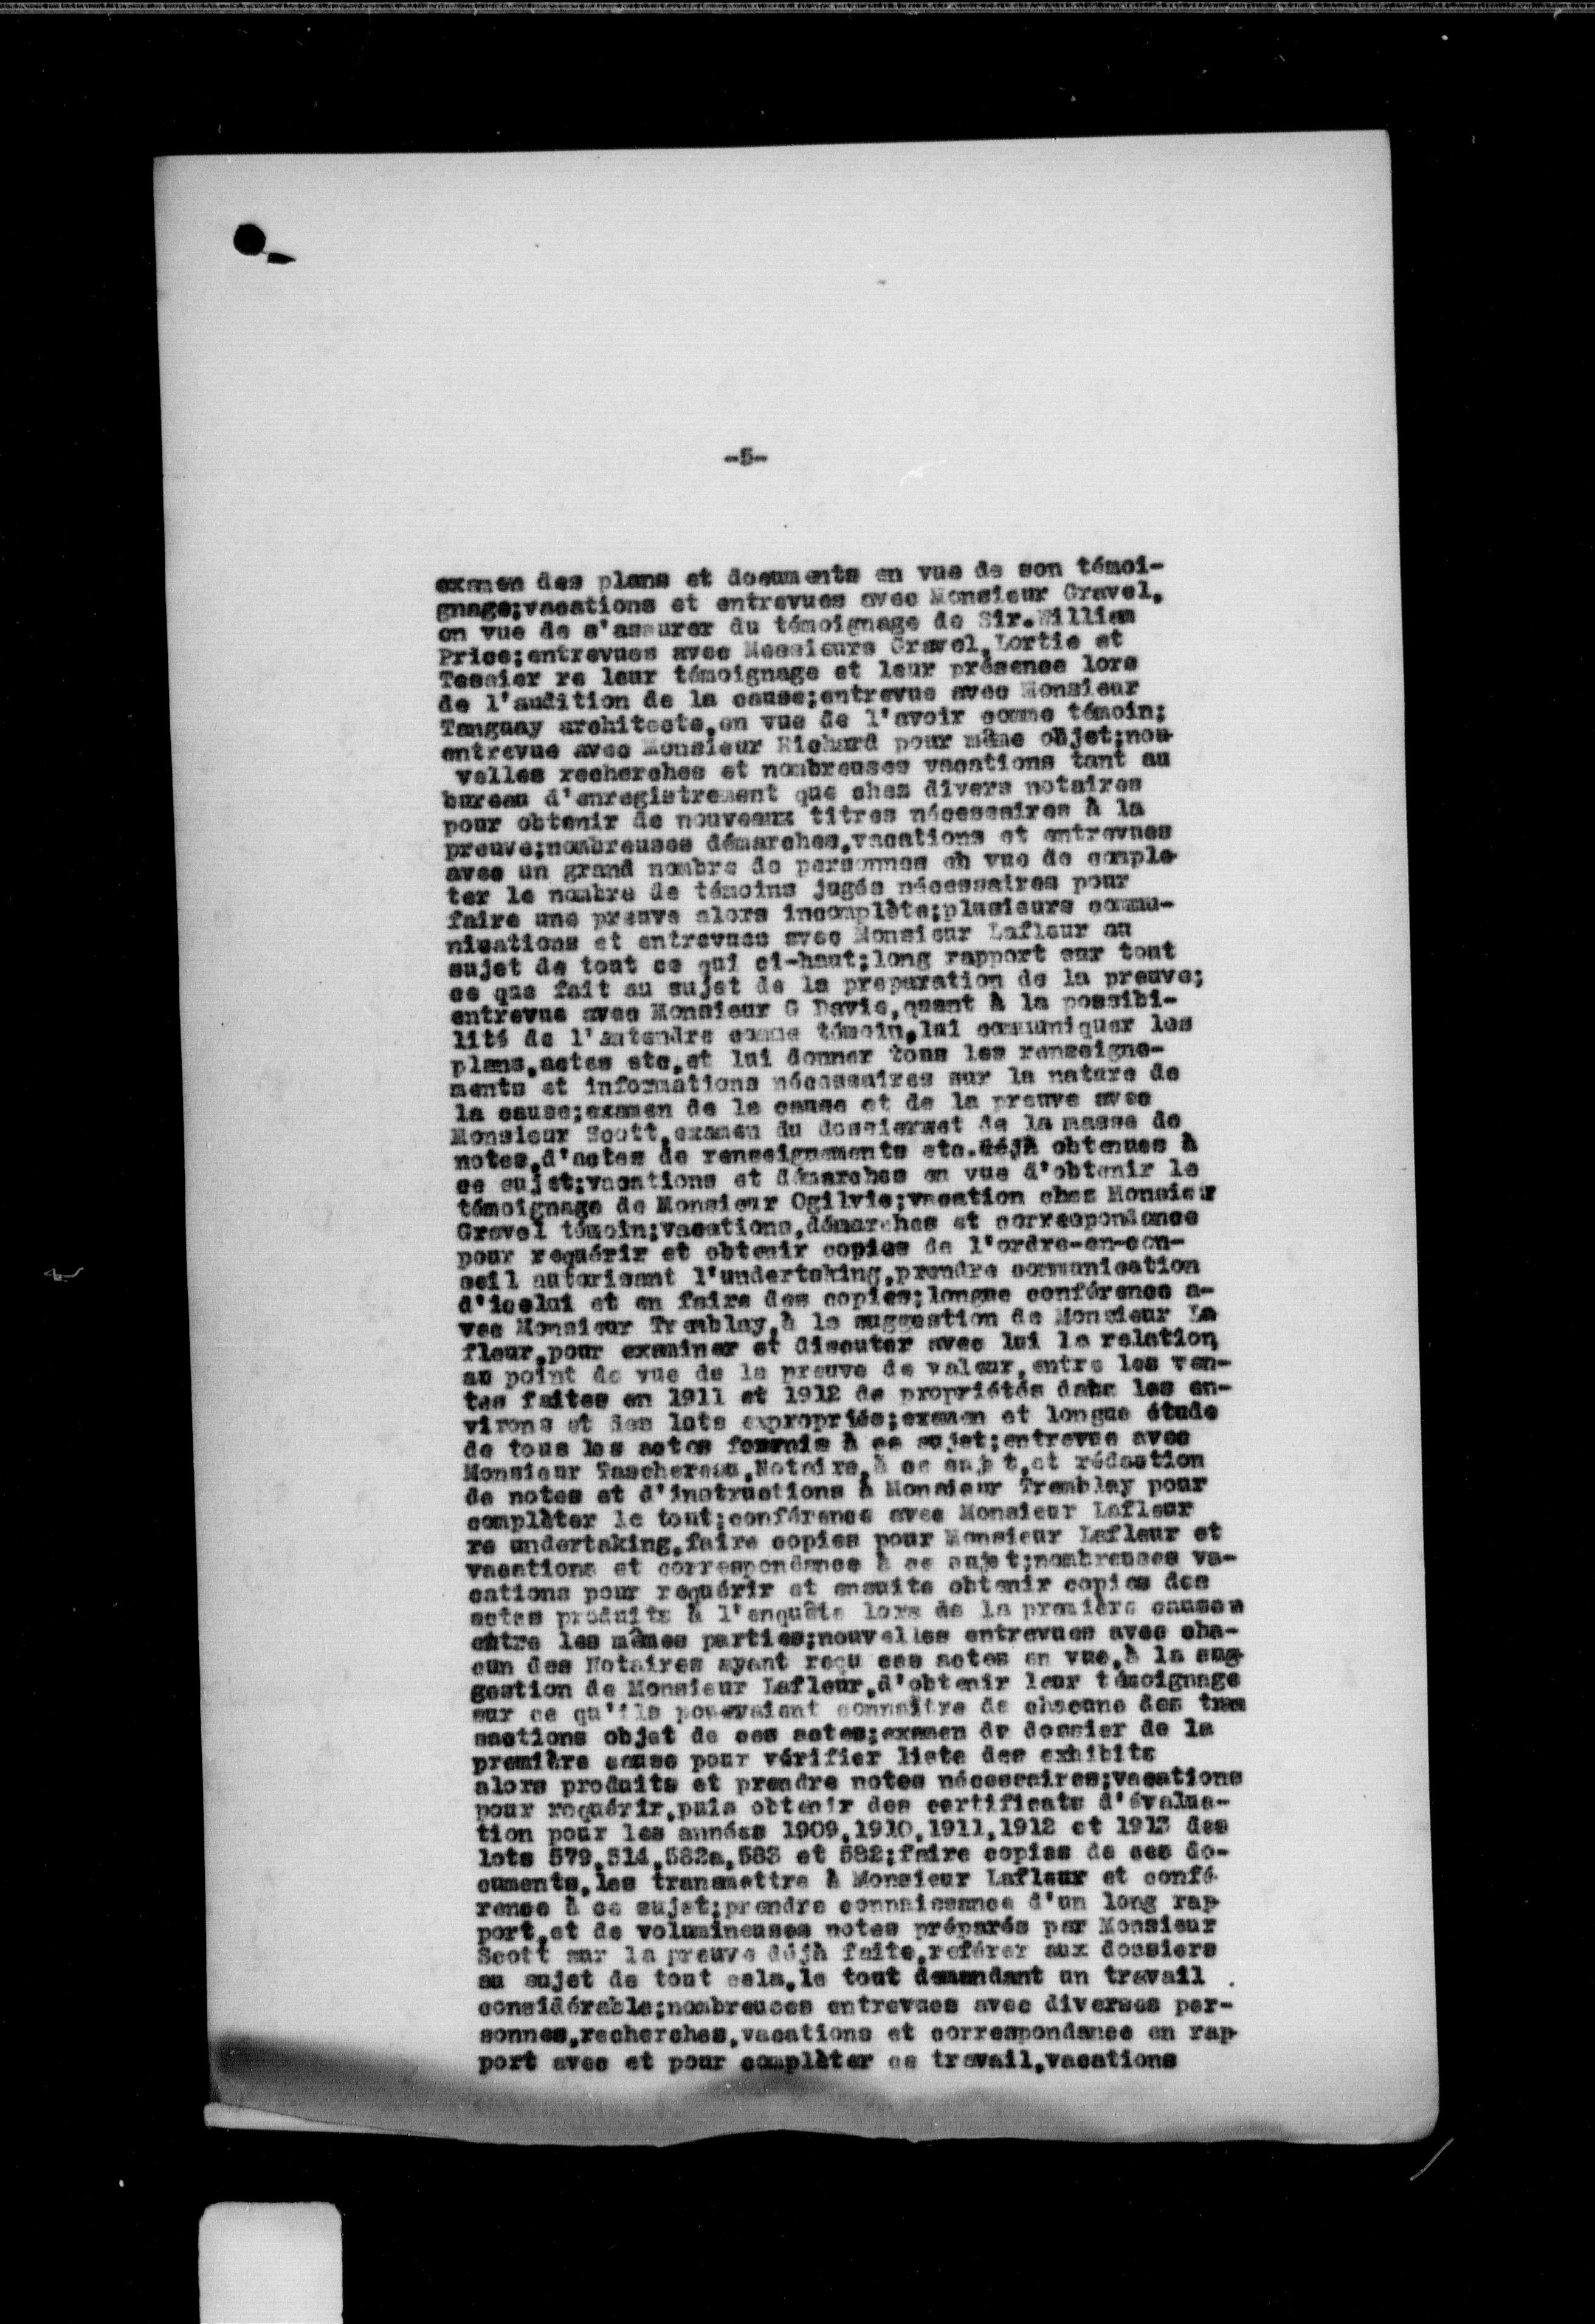 -5-
examen des plans et documents en vue de son témoi-
gnage;vacations et entrevues avec Monsieur Gravel,
en vue de s'assurer du témoignage de Sir.William
Price;entrevues avec Messieurs Gravel,Lortie et
Tessier re leur témoignage et leur présence lors
de l'audition de la cause;entrevue avec Monsieur
Tanguay architecte,en vue de l'avoir comme témoin;
entrevue avec Monsieur Richard pour même objet;nou-
velles recherches et nombreuses vacations tant au
bureau d'enregistrement que chez divers notaires
pour obtenir de nouveaux titres nécessaires à la
preuve;nombreuses démarches,vacations et entrevues
avec un grand nombre de personnes en vue de comple-
ter le nombre de témoins jugés nécessaires pour
faire une preuve alors incomplète;plusieurs commu-
nications et entrevues avec Monsieur Lafleur au
sujet de tout ce qui ci-haut;long rapport sur tout
ce que fait au sujet de la preparation de la preuve;
entrevue avec Monsieur G Davie,quant à la possibi-
lité de l'entendre comme témoin,lui communiquer les
plans,actes etc,et lui donner tous les renseigne-
ments et informations nécessaires sur la nature de
la cause;examen de la cause et de la preuve avec
Monsieur Scott,examen du dossier et de la masse de
notes,d'actes de renseignements etc.déjà obtenues à
ce sujet;vacations et démarches en vue d'obtenir le
témoignage de Monsieur Ogilvie;vacation chez Monsieur
Gravel témoin;vacations,démarches et correspondance
pour requérir et obtenir copies de l'ordre-en-con-
seil autorisant l'undertaking,prendre communication
d'icelui et en faire des copies;longue conférence a-
vec Monsieur Tremblay,à la suggestion de Monsieur La
fleur,pour examiner et discuter avec lui la relation,
au point de vue de la preuve de valeur,entre les ven-
tes faites en 1911 et 1912 de propriétés dans les en-
virons et des lots expropriés;examen et longue étude
de tous les actes fournis à ce sujet;entrevue avec
Monsieur Taschereau,Notaire,à ce sujet,et rédaction
de notes et d'instructions à Monsieur Tremblay pour
complèter le tout;conférence avec Monsieur Lafleur
re undertaking,faire copies pour Monsieur Lafleur et
vacations et correspondance à ce sujet;nombreuses va-
cations pour requérir et ensuite obtenir copies des
actes produits à l'enquête lors de la première cause
entre les mêmes parties;nouvelles entrevues avec cha-
cun des Notaires ayant reçu ces actes en vue,à la sug-
gestion de Monsieur Lafleur,d'obtenir leur témoignage
sur ce qu'ils pouvaient connaître de chacune des tran
sactions objet de ces actes;examen du dossier de la
première cause pour vérifier liste des exhibits
alors produits et prendre notes nécessaires;vacations
pour requérir,puis obtenir des certificats d'évalua-
tion pour les années 1909,1910,1911,1912 et 1913 des
lots 579,514,582a,583 et 582;faire copies de ces do-
cuments,les transmettre à Monsieur Lafleur et confé-
rence à ce sujet;prendre connaissance d'un long rap-
port,et de volumineuses notes préparés par Monsieur
Scott sur la preuve déjà faite,reférer aux dossiers
au sujet de tout cela,le tout demandant un travail
considérable;nombreuses entrevues avec diverses per-
sonnes,recherches,vacations et correspondance en rap-
port avec et pour complèter ce travail,vacations